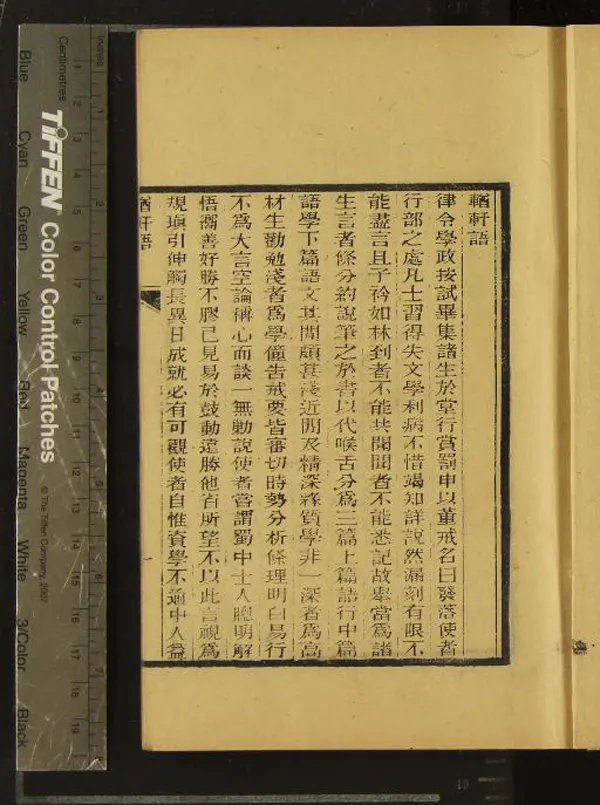 輶軒語
律令學政按試畢集諸生於堂行賞罰申以董戒名曰發落使者
行部之處凡士習得失文學利病不惜竭知詳說然漏刻有限不
能盡言且子衿如林到者不能共聞聞者不能悉記故舉當爲諸
生言者條分約說筆之於書以代喉舌分爲三篇上篇語行中篇
語學下篇語文其間頗甚淺近閒及精深緣質學非一深者爲高
材生勸勉淺者爲學僮告戒要皆審切時勢分析條理明白易行
不爲大言空論稱心而談一無勦說使者嘗謂蜀中士人聰明解
悟嚮善好勝不膠己見易於鼓動遠勝他省所望不以此言視爲
規瑱引伸觸長異日成就必有可觀使者自惟資學不過中人益
輶軒語
一
inches
Centimetres
TIFFEN Color Control Patches
© The Tiffen Company, 2007
Blue
Cyan
Green
Yellow
Red
Magenta
White
3/Color
Black